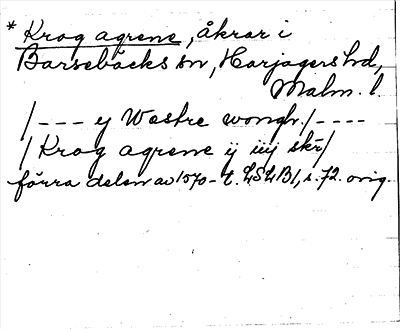 * Krog agrene, åkrar i
Barsebäcks sn, Harjagers hd,
Malm. l.
/--- y Westre wongh./----
/Krog agrene ij iiij skr/
förra delen av 1570-t. LSLB1, s. 72. orig.